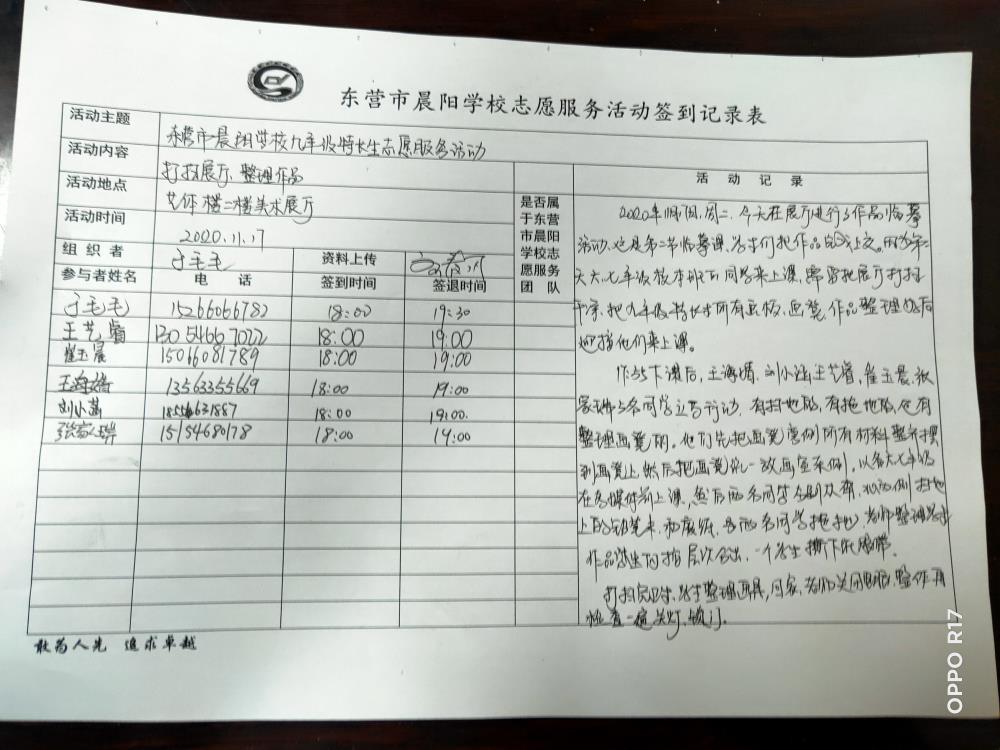 东营市晨阳学校志愿服务活动签到记录表
活动主题 东营市晨阳学校九年级特长生志愿服务活动
活动内容 打扫展厅、整理作品
活动地点 艺体楼二楼美术展厅
活动时间 2020.11.17
组织者 于毛毛 资料上传
参与者姓名 电话 签到时间 签退时间
是否属
于东营
市晨阳
学校志
愿服务
团队
于毛毛 15266066782 18:00 19:30
王艺睿 13054667022 18:00 19:00
崔玉晨 15066081789 18:00 19:00
王海婧 13563355669 18:00 19:00
刘小涵 18:00 19:00.
张家瑞 15154680178 18:00 19:00
活动记录
2020年 周二、今天在展厅进行了作品临摹
活动、这是第二节临摹课、学生们把作品完成上交。因为第二
天六七年级 同学来上课,需要把展厅打扫
干净、把九年级特长生所有画板、画凳、作品整理好后
迎接他们来上课。
下课后,王海婧、刘小涵王艺睿,崔玉晨、张
家瑞 名同学立马行动、有扫地的,有拖地的,还有
整理画凳的。他们先把画凳 所有材料整齐摆
到画凳上 然后把画凳统一放画室 侧,以备六七年级
在多媒体前上课,然后两名同学 扫地
上的铅笔末、和废纸、另两名同学拖地、老师整理学生
作品 按层次 、一个学生撕下 胶带。
打扫完卫生、学生整理画具,回家、老师关闭电源, 再
检查一遍 关灯、锁门.
敢为人先 追求卓越
OPPO R17